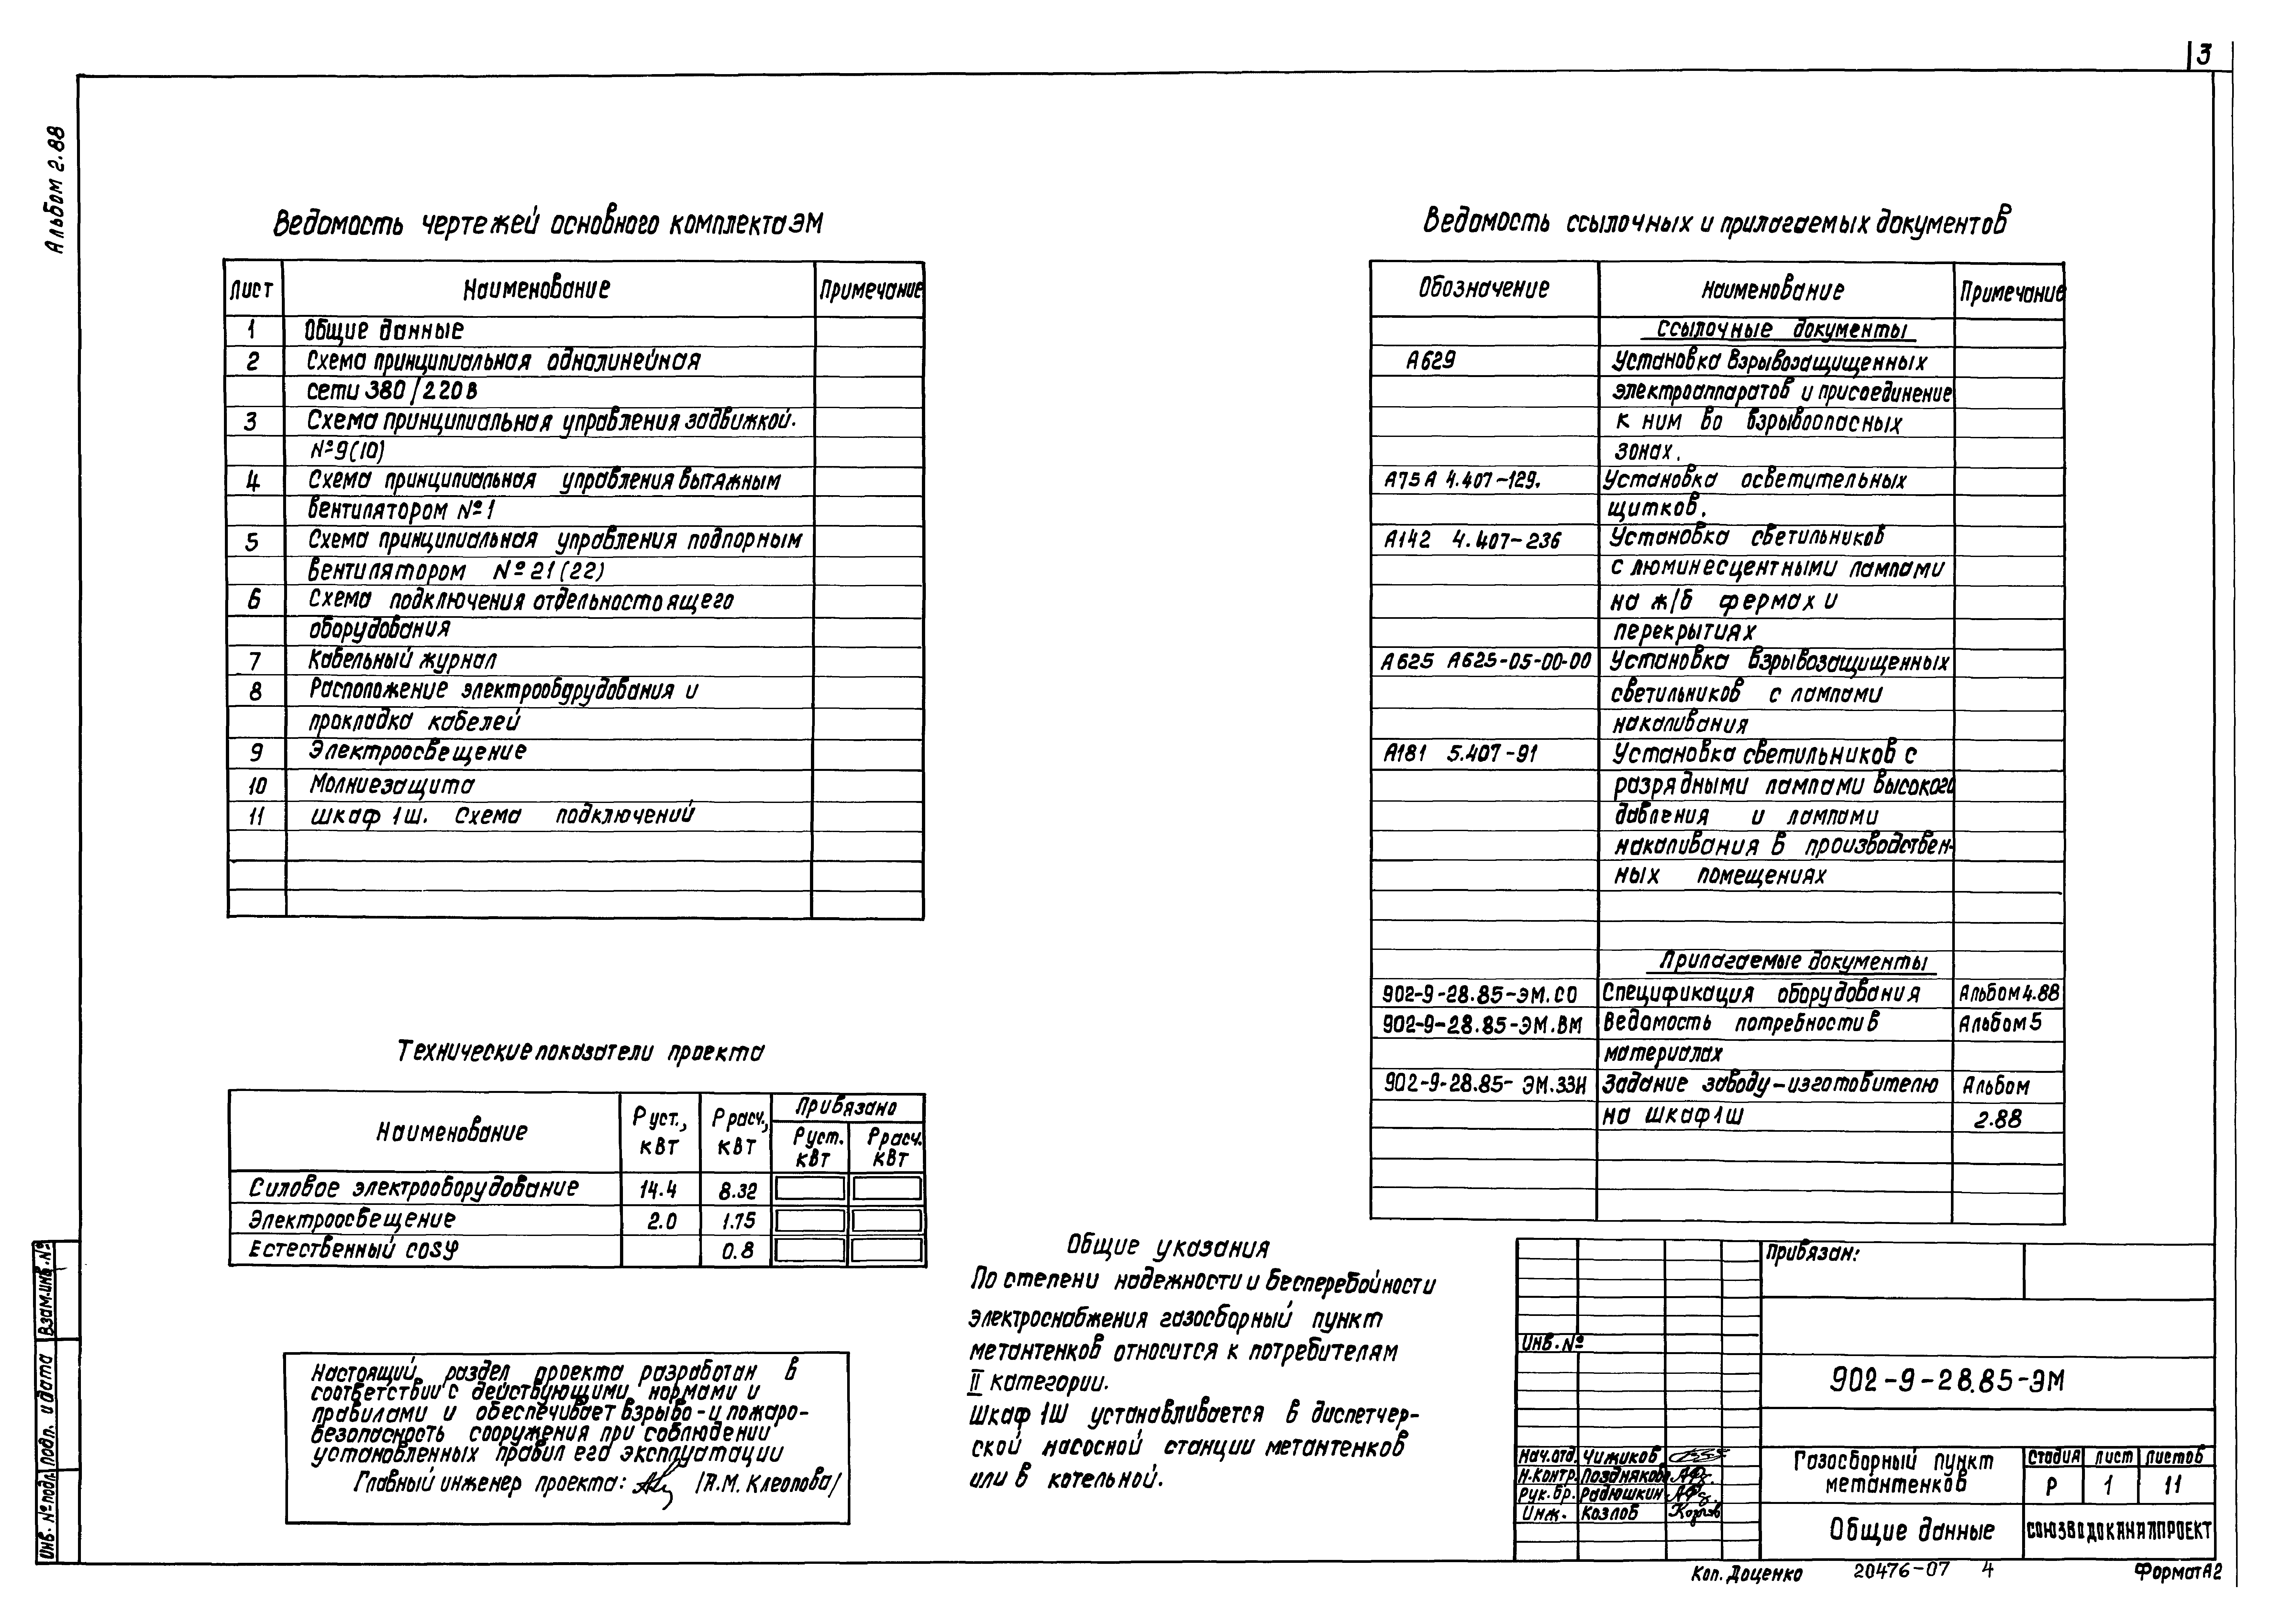 3
Альбом 2.88
Ведомость чертежей основного комплекта ЭМ
Лист Наименование Примечание
1 Общие данные
2 Схема принципиальная однолинейная
сети 380/220В
3 Схема принципиальная управления задвижкой.
№9(10)
4 Схема принципиальная управления вытяжным
вентилятором №1
5 Схема принципиальная управления подпорным
вентилятором №21(22)
6 Схема подключения отдельностоящего
оборудования
7 Кабельный журнал
8 Расположение электрооборудования и
прокладка кабелей
9 Электроосвещение
10 Молниезащита
11 Шкаф 1Ш. Схема подключений
Ведомость ссылочных и прилагаемых документов
Обозначение Наименование Примечание
Ссылочные документы
А629 Установка взрывозащищенных
электроаппаратов и присоединение
к ним во взрывоопасных
зонах.
А75А 4.407-129. Установка осветительных
щитков.
А142 4.407-236 Установка светильников
с люминесцентными лампами
на ж/б фермах и
перекрытиях
А625 А625-05-00-00 Установка взрывозащищенных
светильников с лампами
накаливания
А181 5.407-91 Установка светильников с
разрядными лампами высокого
давления и лампами
накаливания в производствен-
ных помещениях
Прилагаемые документы
902-9-28.85-ЭМ.СО Спецификация оборудования Альбом 4.88
902-9-28.85-ЭМ.ВМ Ведомость потребности в Альбом 5
материалах
902-9-28.85-ЭМ.ЗЗИ Задание заводу-изготовителю Альбом
на шкаф 1Ш 2.88
Технические показатели проекта
Наименование Р уст., кВт Р расч., кВт Привязано
Р уст. кВт Р расч. кВт
Силовое электрооборудование 14.4 8.32
Электроосвещение 2.0 1.75
Естественный cosφ 0.8
Настоящий раздел проекта разработан в
соответствии с действующими нормами и
правилами и обеспечивает взрыво-и пожаро-
безопасность сооружения при соблюдении
установленных правил его эксплуатации
Главный инженер проекта: /А.М. Клеопова/
Общие указания
По степени надежности и бесперебойности
электроснабжения газосборный пункт
метантенков относится к потребителям
II категории.
Шкаф 1Ш устанавливается в диспетчер-
ской насосной станции метантенков
или в котельной.
Привязан:
Инв. №
902-9-28.85-ЭМ
Нач.отд. Чижиков
Н.контр. Позднякова
Рук.бр. Радюшкин
Инж. Козлов
Газосборный пункт
метантенков
Стадия Лист Листов
Р 1 11
Общие данные
СОЮЗВОДОКАНАЛПРОЕКТ
Взам.инв.№
Подп. и дата
Инв. № подл.
Коп. Доценко 20476-07 4 Формат А2